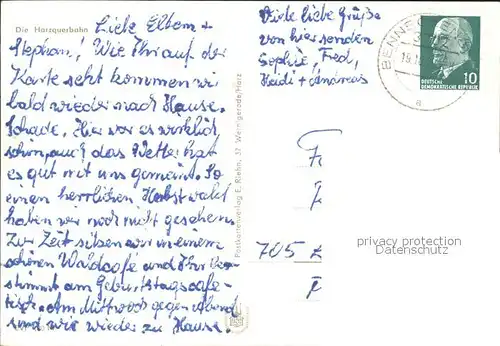 Die Harzquerbahn
Liebe Eltern +
Stephan! Wie Ihr auf der
Karte seht kommen wir
bald wieder nach Hause.
Schade. Hier war es wirklich
schön, auch das Wetter hat
es gut mit uns gemeint. So
einen herrlichen Herbstwald
haben wir noch nicht gesehen.
Zur Zeit sitzen wir in einem
schönen Waldcafé und Ihr be-
stimmt am Geburtstagskaffe-
tisch. Am Mittwoch gegen Abend
sind wir wieder zu Hause!
Postkartenverlag E. Riehn, 37 Wernigerode/Harz
Viele liebe Grüße
von hier senden
Sophie, Fred,
Heidi + Andreas
BENNE
10
DEUTSCHE
DEMOKRATISCHE REPUBLIK
705
privacy protection
Datenschutz